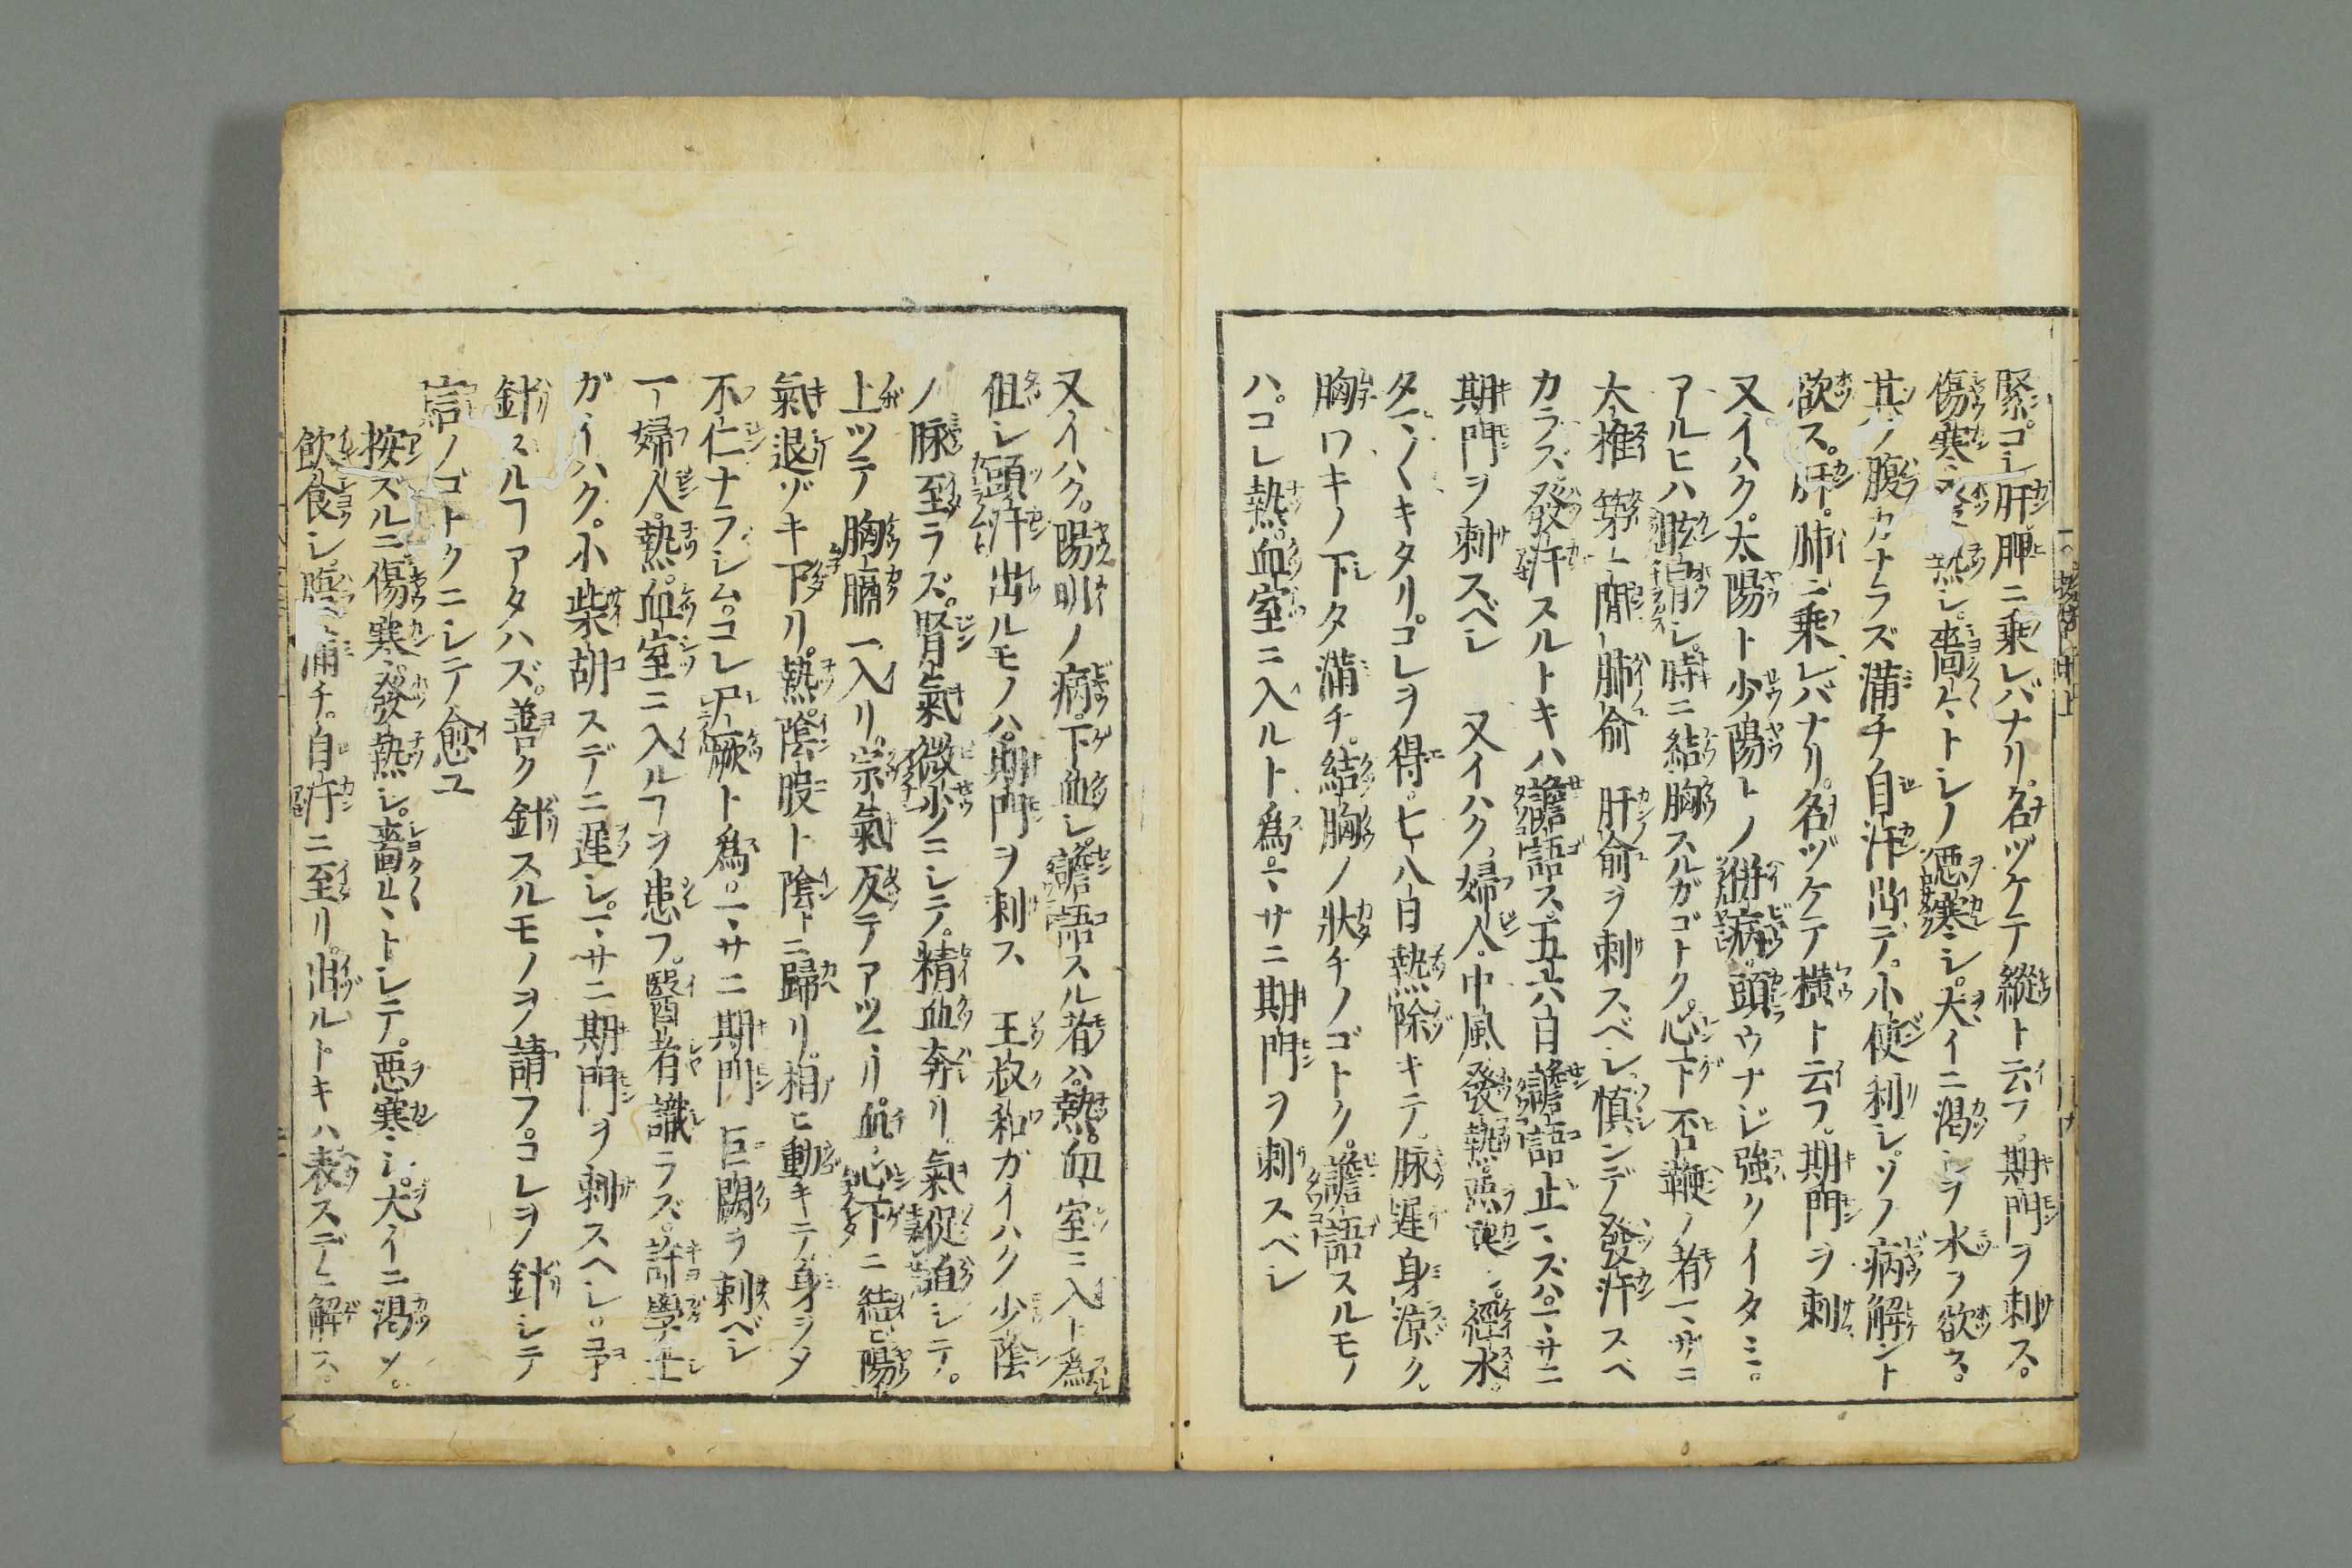 緊。コレ肝脾ニ乗レバナリ。名ヅケテ縦ト云フ。期門ヲ刺ス。
傷寒發熱シ。嗇〻トシノ悪寒シ。大イニ渇シヲ水ヲ欲ス。
其ノ腹カナラズ満チ自汗出デ。小便利シ。ソノ病解ント
欲ス。肝。肺ニ乗レバナリ。名ヅケテ横ト云フ。期門ヲ刺
又イハク。太陽ト少陽トノ併病。頭ウナジ強リイタミ。
アルヒハ眩冒シ。時ニ結胸スルガゴトク。心下否鞕ノ者マサニ
大椎第一間肺俞肝俞ヲ刺スベシ慎ンデ發汗スベ
カラズ發汗スルトキハ譫語ス。五六日譫語止マズハ。マサニ
期門ヲ刺スベシ 又イハク婦人。中風發熱悪寒シ。經水。
タマ〱キタリ。コレヲ得。七八日熱除キテ。脉遅身涼ク。
胸ワキノ下タ満チ。結胸ノ狀チノゴトク。譫語スルモノ
ハ。コレ熱。血室ニ入ルト為。マサニ期門ヲ刺スベシ
又イハク。陽明ノ病。下血シ。譫語スル者ハ。熱。血室ニ入ト為
但シ頭汗出ルモノハ。期門ヲ刺ス 王叔和ガイハク少陰
ノ脉至ラズ。腎氣微少ニシテ。精血奔リ。氣促迫シテ。
上ツテ胸膈ニ入リ。宗氣反テアツマリ。血心下ニ結ビ陽
氣退ゾキ下リ。熱。陰股ト陰トニ歸リ。相ヒ動キテ身ヲメ
不仁ナラシム。コレ尸厥ト為。マサニ期門 巨闕ヲ刺ベシ
一婦人。熱。血室ニ入ルヿヲ患フ。醫者識ラズ。許學士
ガイハク。小柴胡スデニ遅シ。マサニ期門ヲ刺スヘシ。予
針スルヿアタハズ。善ク針スルモノヲ請フ。コレヲ針シテ
言ノゴトクニシテ愈ユ
按スルニ傷寒。發熱シ。嗇〻トシテ。悪寒シ。大イニ渇ソ。
飲食シ。腹満チ。自汗ニ至リ。出ルトキハ表スデニ解ス。